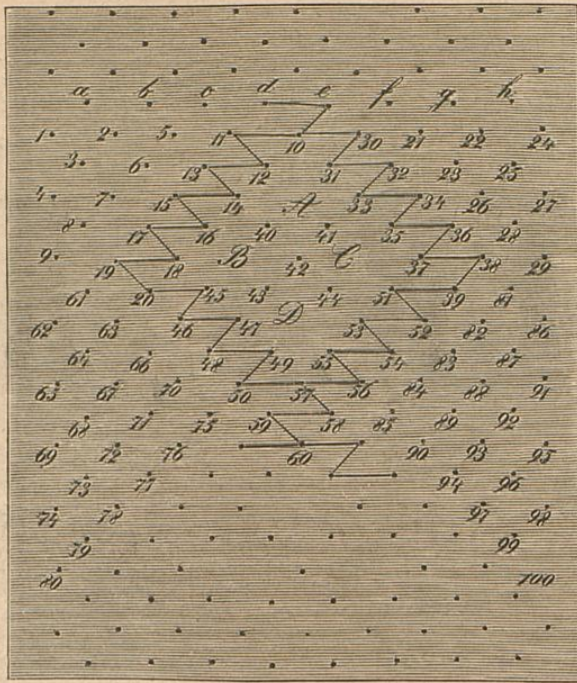 a b c d e f g h
1 2 5 11 10 30 21 22 24
3 6 13 12 31 32 23 25
4 7 15 14 A 33 34 26 27
8 17 16 40 41 35 36 28
9 19 18 B 42 C 37 38 29
61 20 45 43 44 51 39 81
62 63 46 47 D 53 52 82 86
64 66 48 49 55 54 83 87
65 67 70 50 57 56 84 88 91
68 71 75 59 58 85 89 92
69 72 76 60 90 93 95
73 77 94 96
74 78 97 98
79 99
80 100